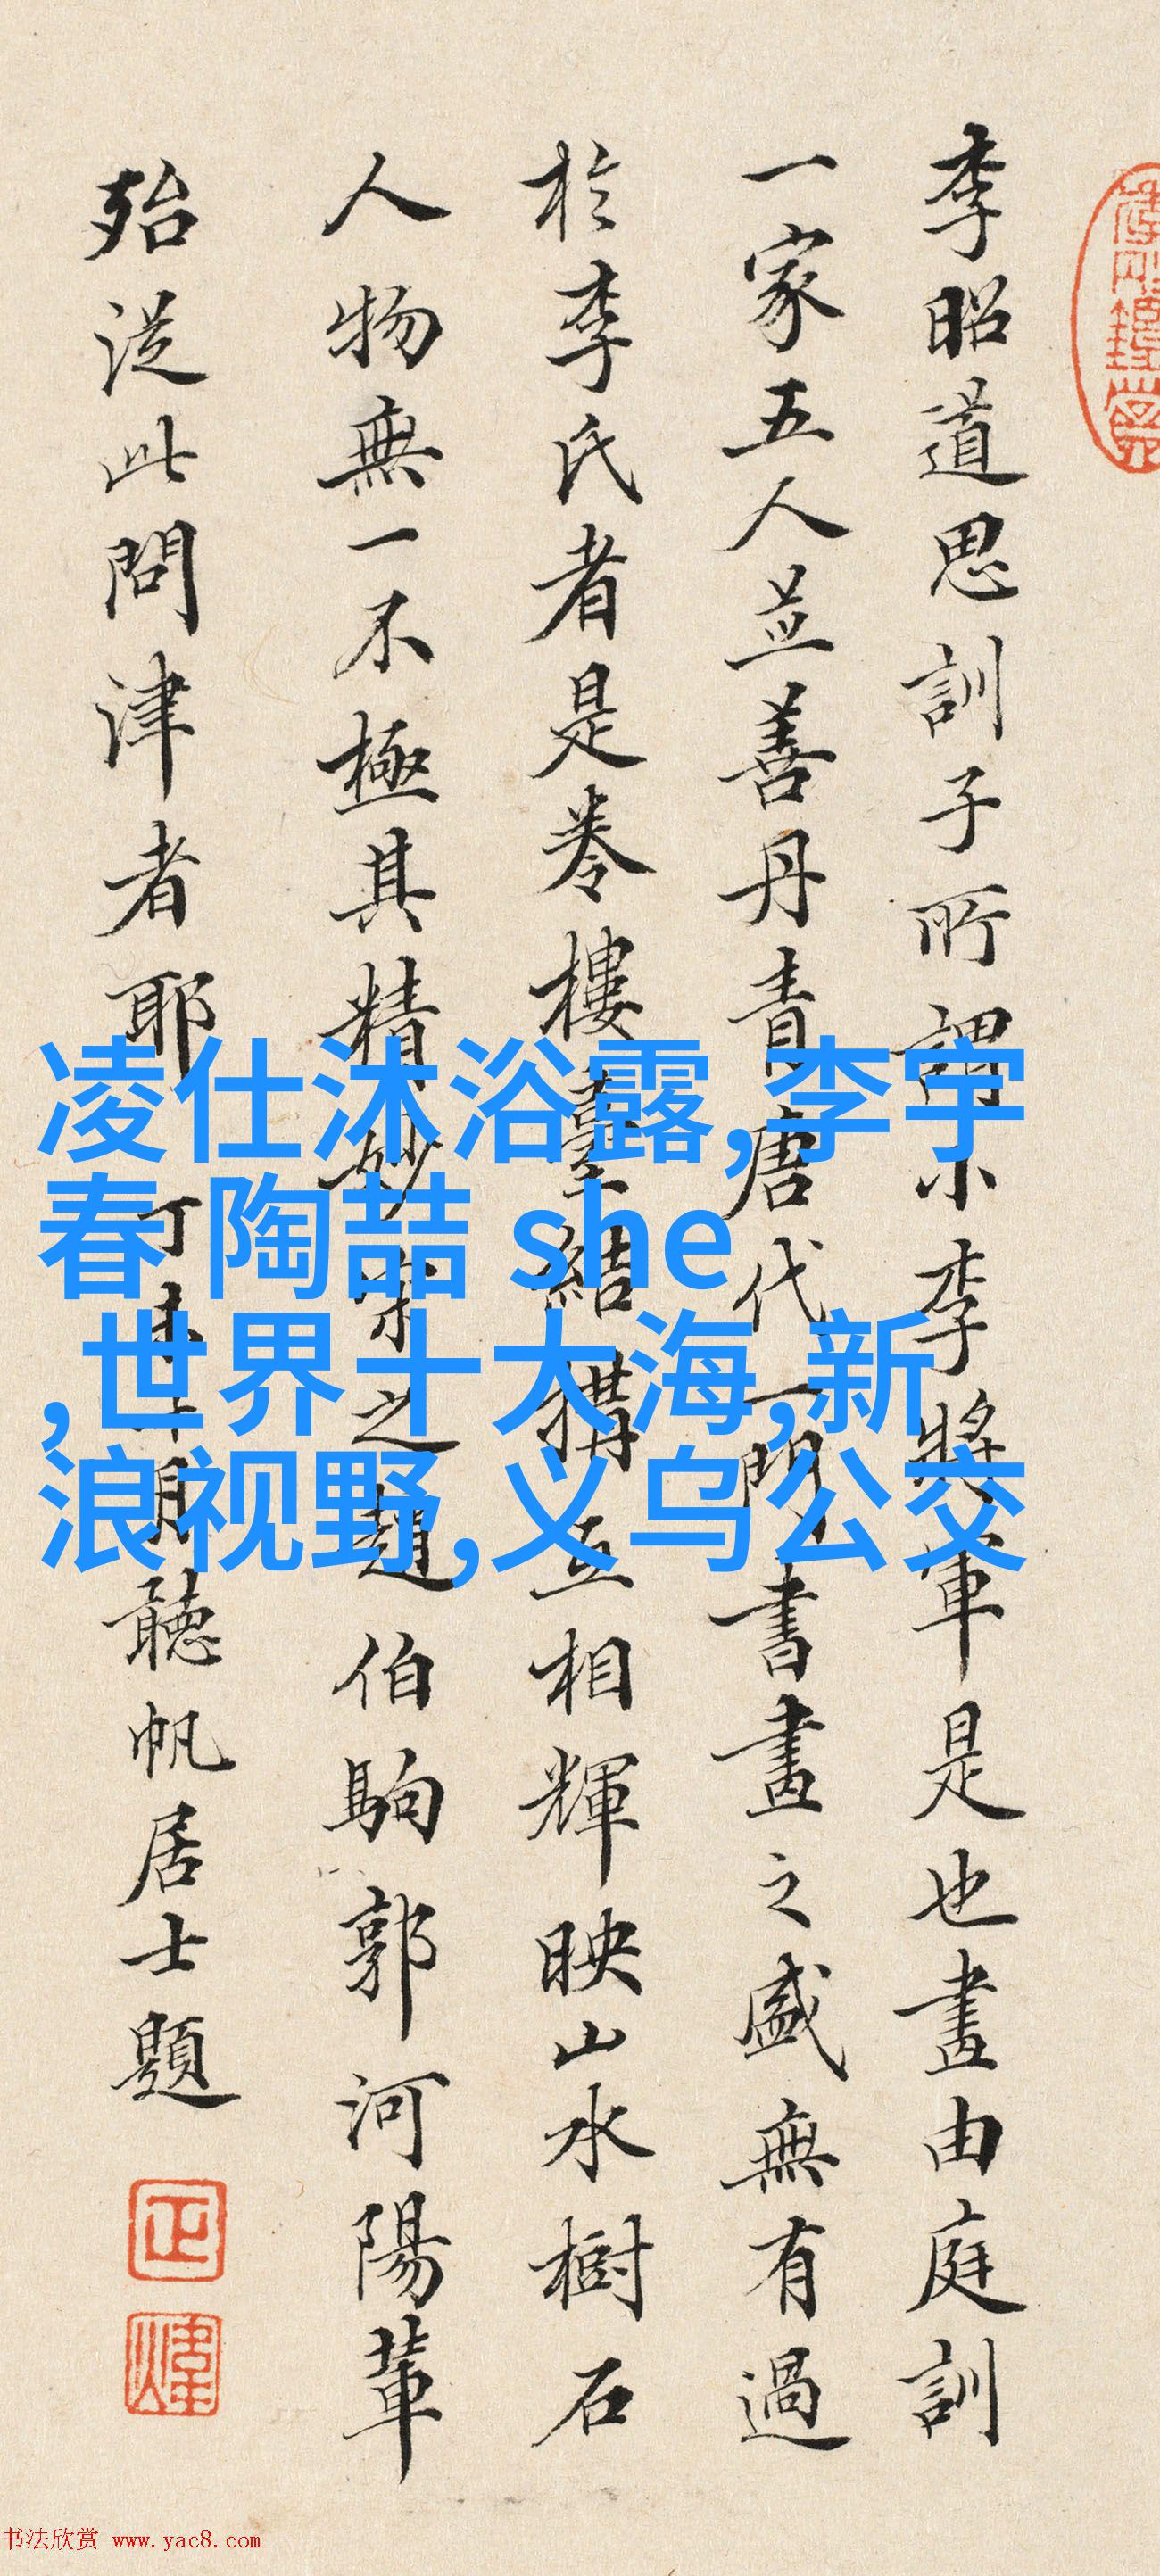 李昭道思訓子所謂小李將軍是也畫由庭訓
一家五人並善丹青唐代一門書畫之盛無有過
於李氏者是卷樓臺結構互相輝映山水樹石
人物無一不極其精妙宋之趙伯駒郭河陽輩
殆從此問津者耶
月聽帆居士題
凌仕沐浴露,李宇
春 陶喆 she
,世界十大海,新
浪视野,义乌公交
书法欣赏 www.yac8.com